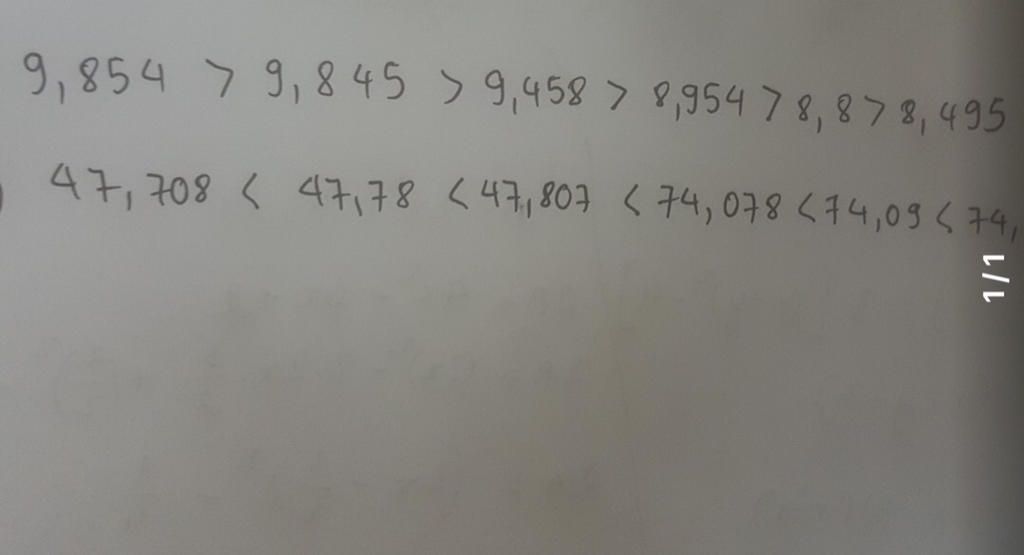 9,854 > 9,845 > 9,458 > 8,954 > 8,8 > 8,495
47,708 < 47,78 < 47,807 < 74,078 < 74,09 < 74,
1/1